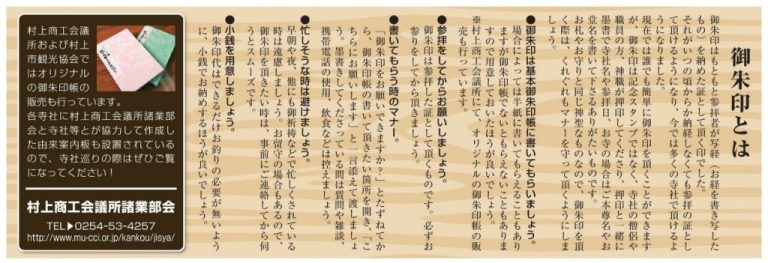 御朱印とは
御朱印はもともと参拝者が写経（お経を書き写した
もの）を納めた証として頂く印でした。
それがいつの頃からか納経しなくても参拝の証とし
て頂けるようになり、今では多くの寺社で頂けるよ
うになりました。
現在では誰でも簡単に御朱印を頂くことができます
が、御朱印は記念スタンプではなく、寺社の僧侶や
職員の方、神職が押印してくださり、押印と一緒に
墨書で寺社名や参拝日、お寺の場合はご本尊名やお
堂名を書いて下さるありがたいものです。
お札やお守りと同じ神聖なものなので、御朱印を頂
く際は、くれぐれもマナーを守って頂くようにしま
しょう。
●御朱印は基本御朱印帳に書いてもらいましょう。
場合によっては半紙に書いてもらえることもあり
ますが御朱印帳でないともらえないこともありま
すので用意しておいたほうが良いでしょう。
※村上商工会議所にて、オリジナルの御朱印帳の販
売も行っています。
●参拝をしてからお願いしましょう。
御朱印は参拝した証として頂くものです。必ずお
参りをしてから頂きましょう。
●書いてもらう時のマナー。
「御朱印をお願いできますか？」とたずねてか
ら、御朱印帳の書いて頂きたい箇所を開き、「こ
ちらにお願いします」と一言添えて渡しましょ
う。墨書きしてくださっている間は質問や雑談、
携帯電話の使用、飲食などは控えましょう。
●忙しそうな時は避けましょう。
早朝や夜、他にも御祈祷などで忙しくされている
時は遠慮しましょう。お留守の場合もあるので、
御朱印を頂きたい時は、事前にご連絡してから伺
うとスムーズです。
●小銭を用意しましょう。
御朱印代はできるだけお釣りの必要が無いよう
に、小銭でお納めするほうが良いでしょう。
村上商工会議
所および村上
市観光協会で
はオリジナル
の御朱印帳の
販売も行っています。
各寺社に村上商工会議所諸業部
会と寺社等とが協力して作成し
た由来案内板も設置されている
ので、寺社巡りの際はぜひご覧
になってください！
村上商工会議所諸業部会
TEL▶0254-53-4257
http://www.mu-cci.or.jp/kankou/jisya/